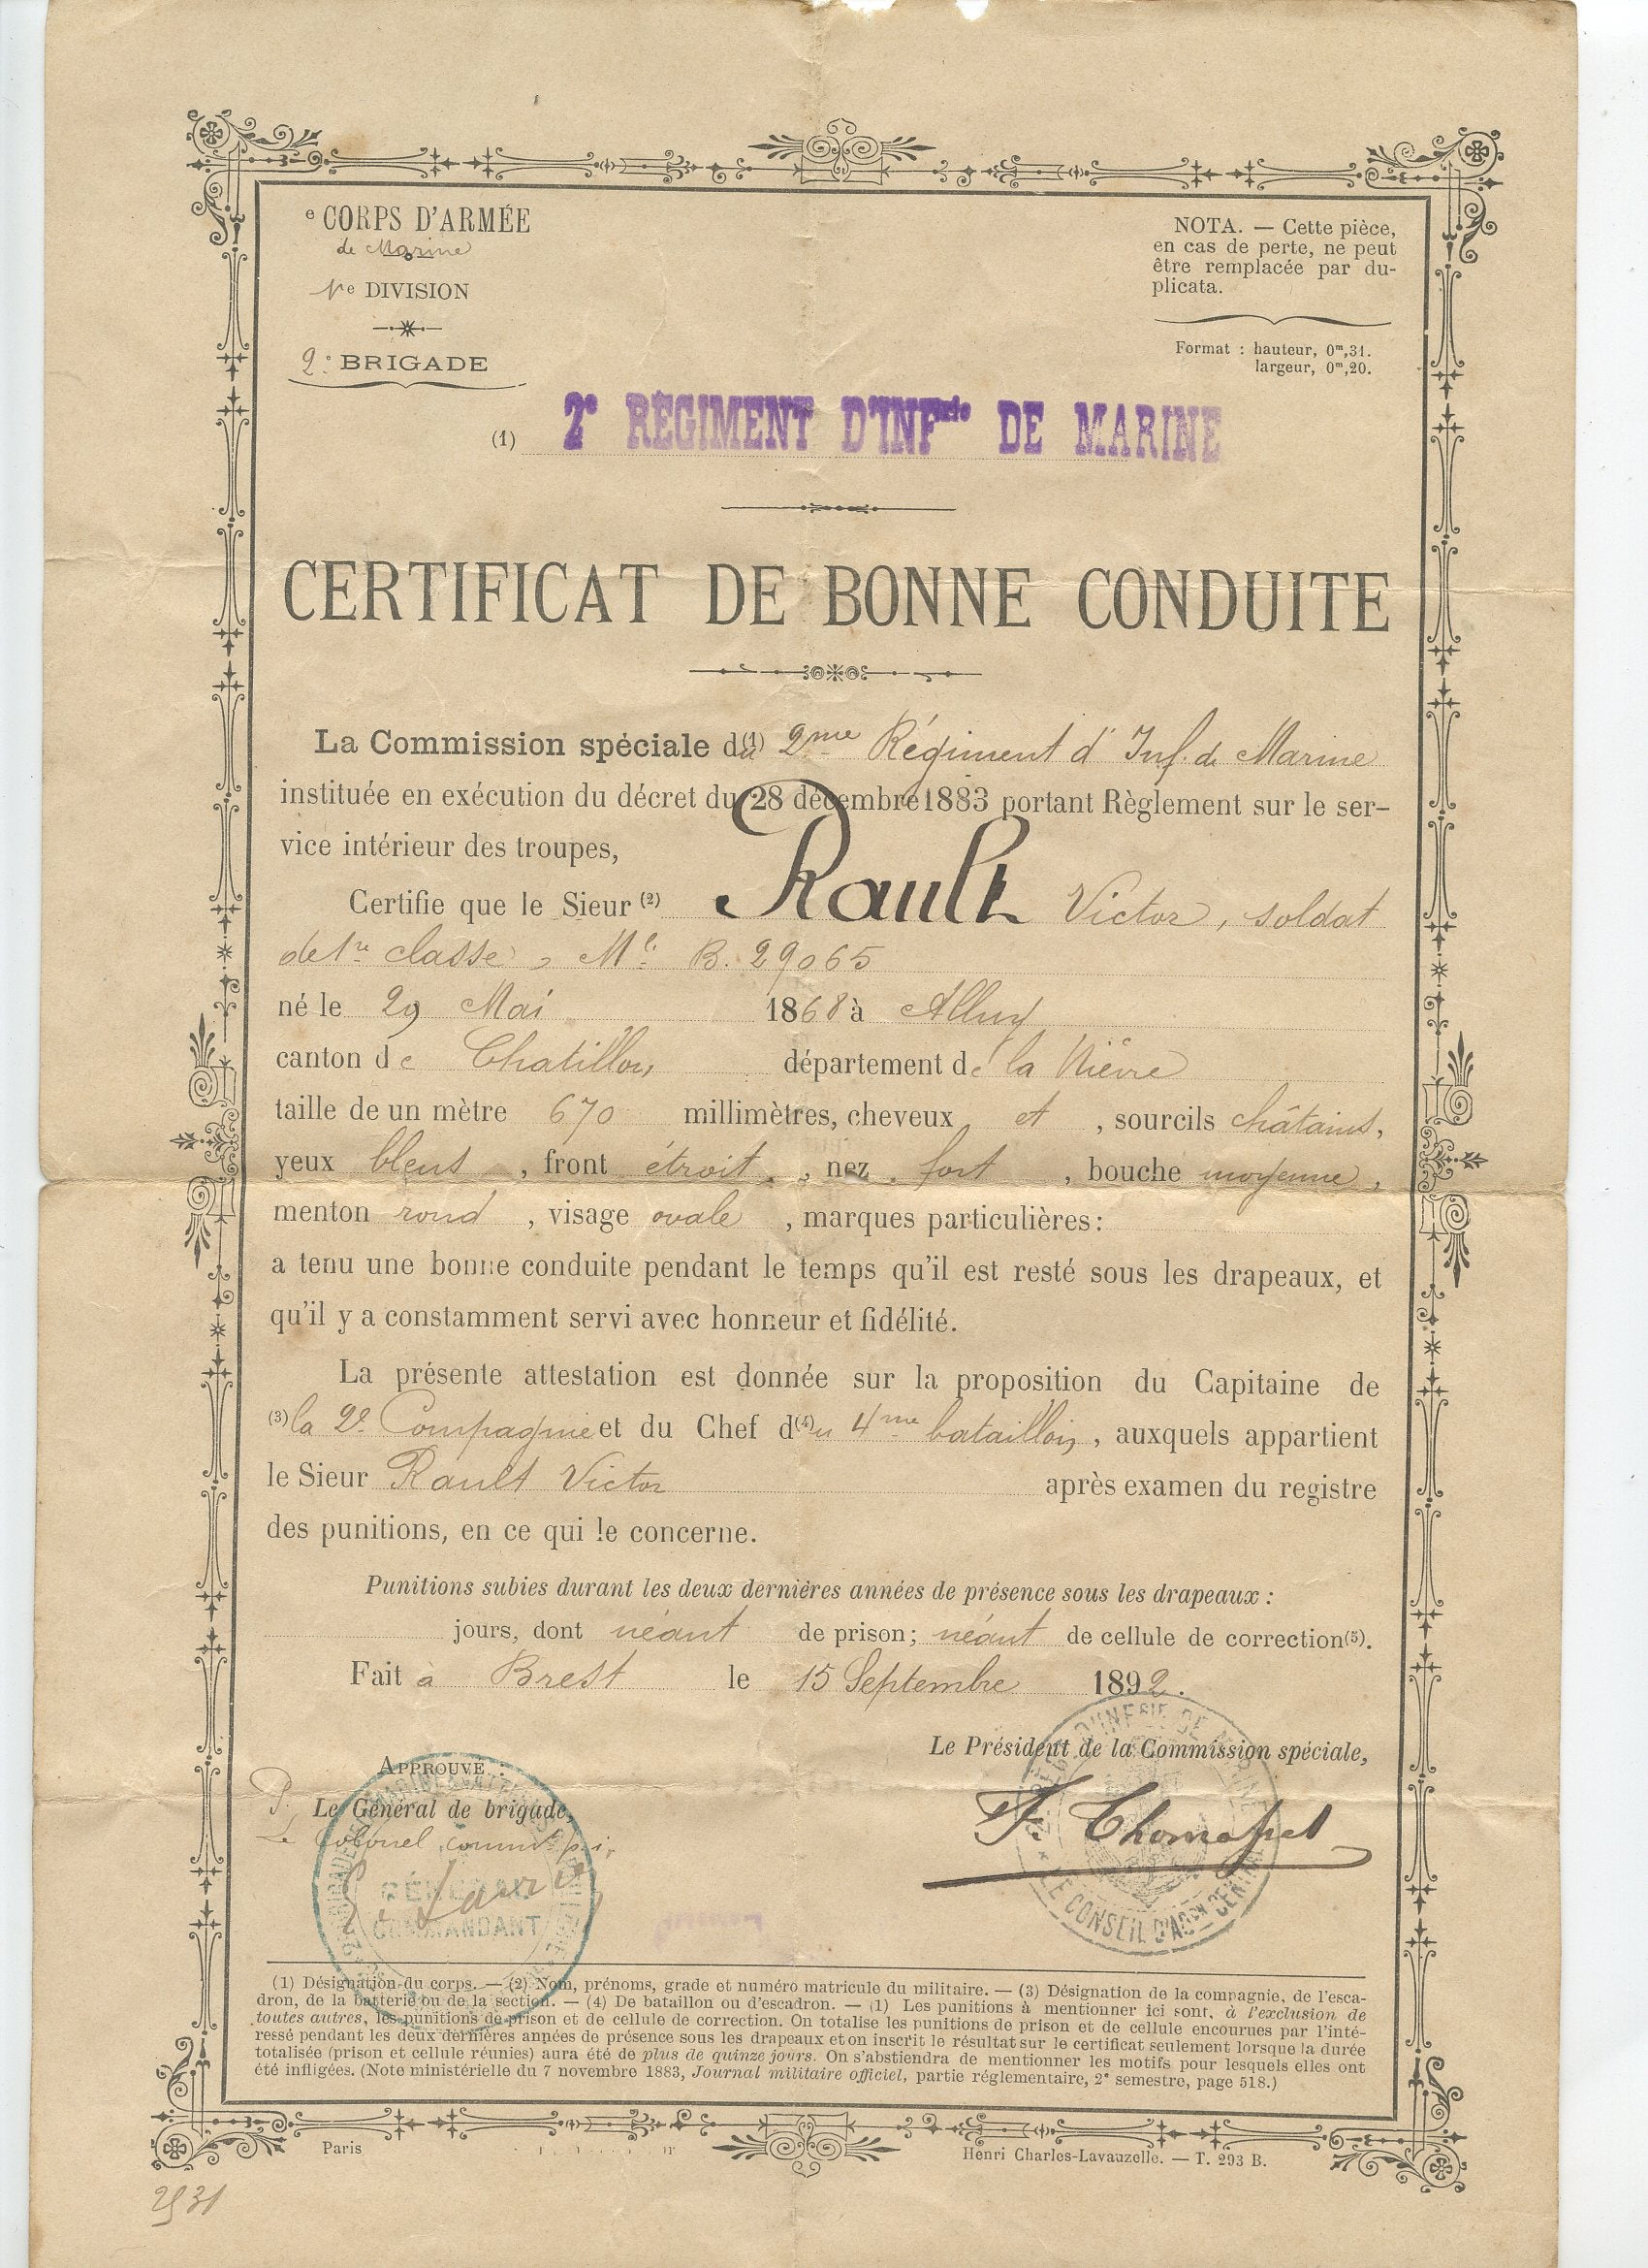 e CORPS D'ARMÉE
de Marine
1re DIVISION
2e BRIGADE
NOTA. — Cette pièce,
en cas de perte, ne peut
être remplacée par du-
plicata.
Format : hauteur, 0m,31.
largeur, 0m,20.
(1) 2e RÉGIMENT D'INFrie DE MARINE
CERTIFICAT DE BONNE CONDUITE
La Commission spéciale du (1) 2me Régiment d'Inf. de Marine
instituée en exécution du décret du 28 décembre 1883 portant Règlement sur le ser-
vice intérieur des troupes,
Certifie que le Sieur (2) Rault Victor, soldat
de 1re classe, Mle B. 29065
né le 29 Mai 1868 à Alluy
canton de Chatillon département de la Nièvre
taille de un mètre 670 millimètres, cheveux et , sourcils châtains,
yeux bleus , front étroit , nez fort , bouche moyenne,
menton rond , visage ovale , marques particulières :
a tenu une bonne conduite pendant le temps qu'il est resté sous les drapeaux, et
qu'il y a constamment servi avec honneur et fidélité.
La présente attestation est donnée sur la proposition du Capitaine de
(3) la 2e Compagnie et du Chef d(4)u 4me bataillon, auxquels appartient
le Sieur Rault Victor après examen du registre
des punitions, en ce qui le concerne.
Punitions subies durant les deux dernières années de présence sous les drapeaux :
jours, dont néant de prison; néant de cellule de correction(5).
Fait à Brest le 15 Septembre 1892.
Le Président de la Commission spéciale,
APPROUVÉ :
P. Le Général de brigade,
Le Colonel, commt p. i.
GÉNÉRAL
COMMANDANT
LE CONSEIL D'ADon CENTRAL
(1) Désignation du corps. — (2) Nom, prénoms, grade et numéro matricule du militaire. — (3) Désignation de la compagnie, de l'esca-
dron, de la batterie ou de la section. — (4) De bataillon ou d'escadron. — (1) Les punitions à mentionner ici sont, à l'exclusion de
toutes autres, les punitions de prison et de cellule de correction. On totalise les punitions de prison et de cellule encourues par l'inté-
ressé pendant les deux dernières années de présence sous les drapeaux et on inscrit le résultat sur le certificat seulement lorsque la durée
totalisée (prison et cellule réunies) aura été de plus de quinze jours. On s'abstiendra de mentionner les motifs pour lesquels elles ont
été infligées. (Note ministérielle du 7 novembre 1883, Journal militaire officiel, partie réglementaire, 2e semestre, page 518.)
Paris
Henri Charles-Lavauzelle. — T. 293 B.